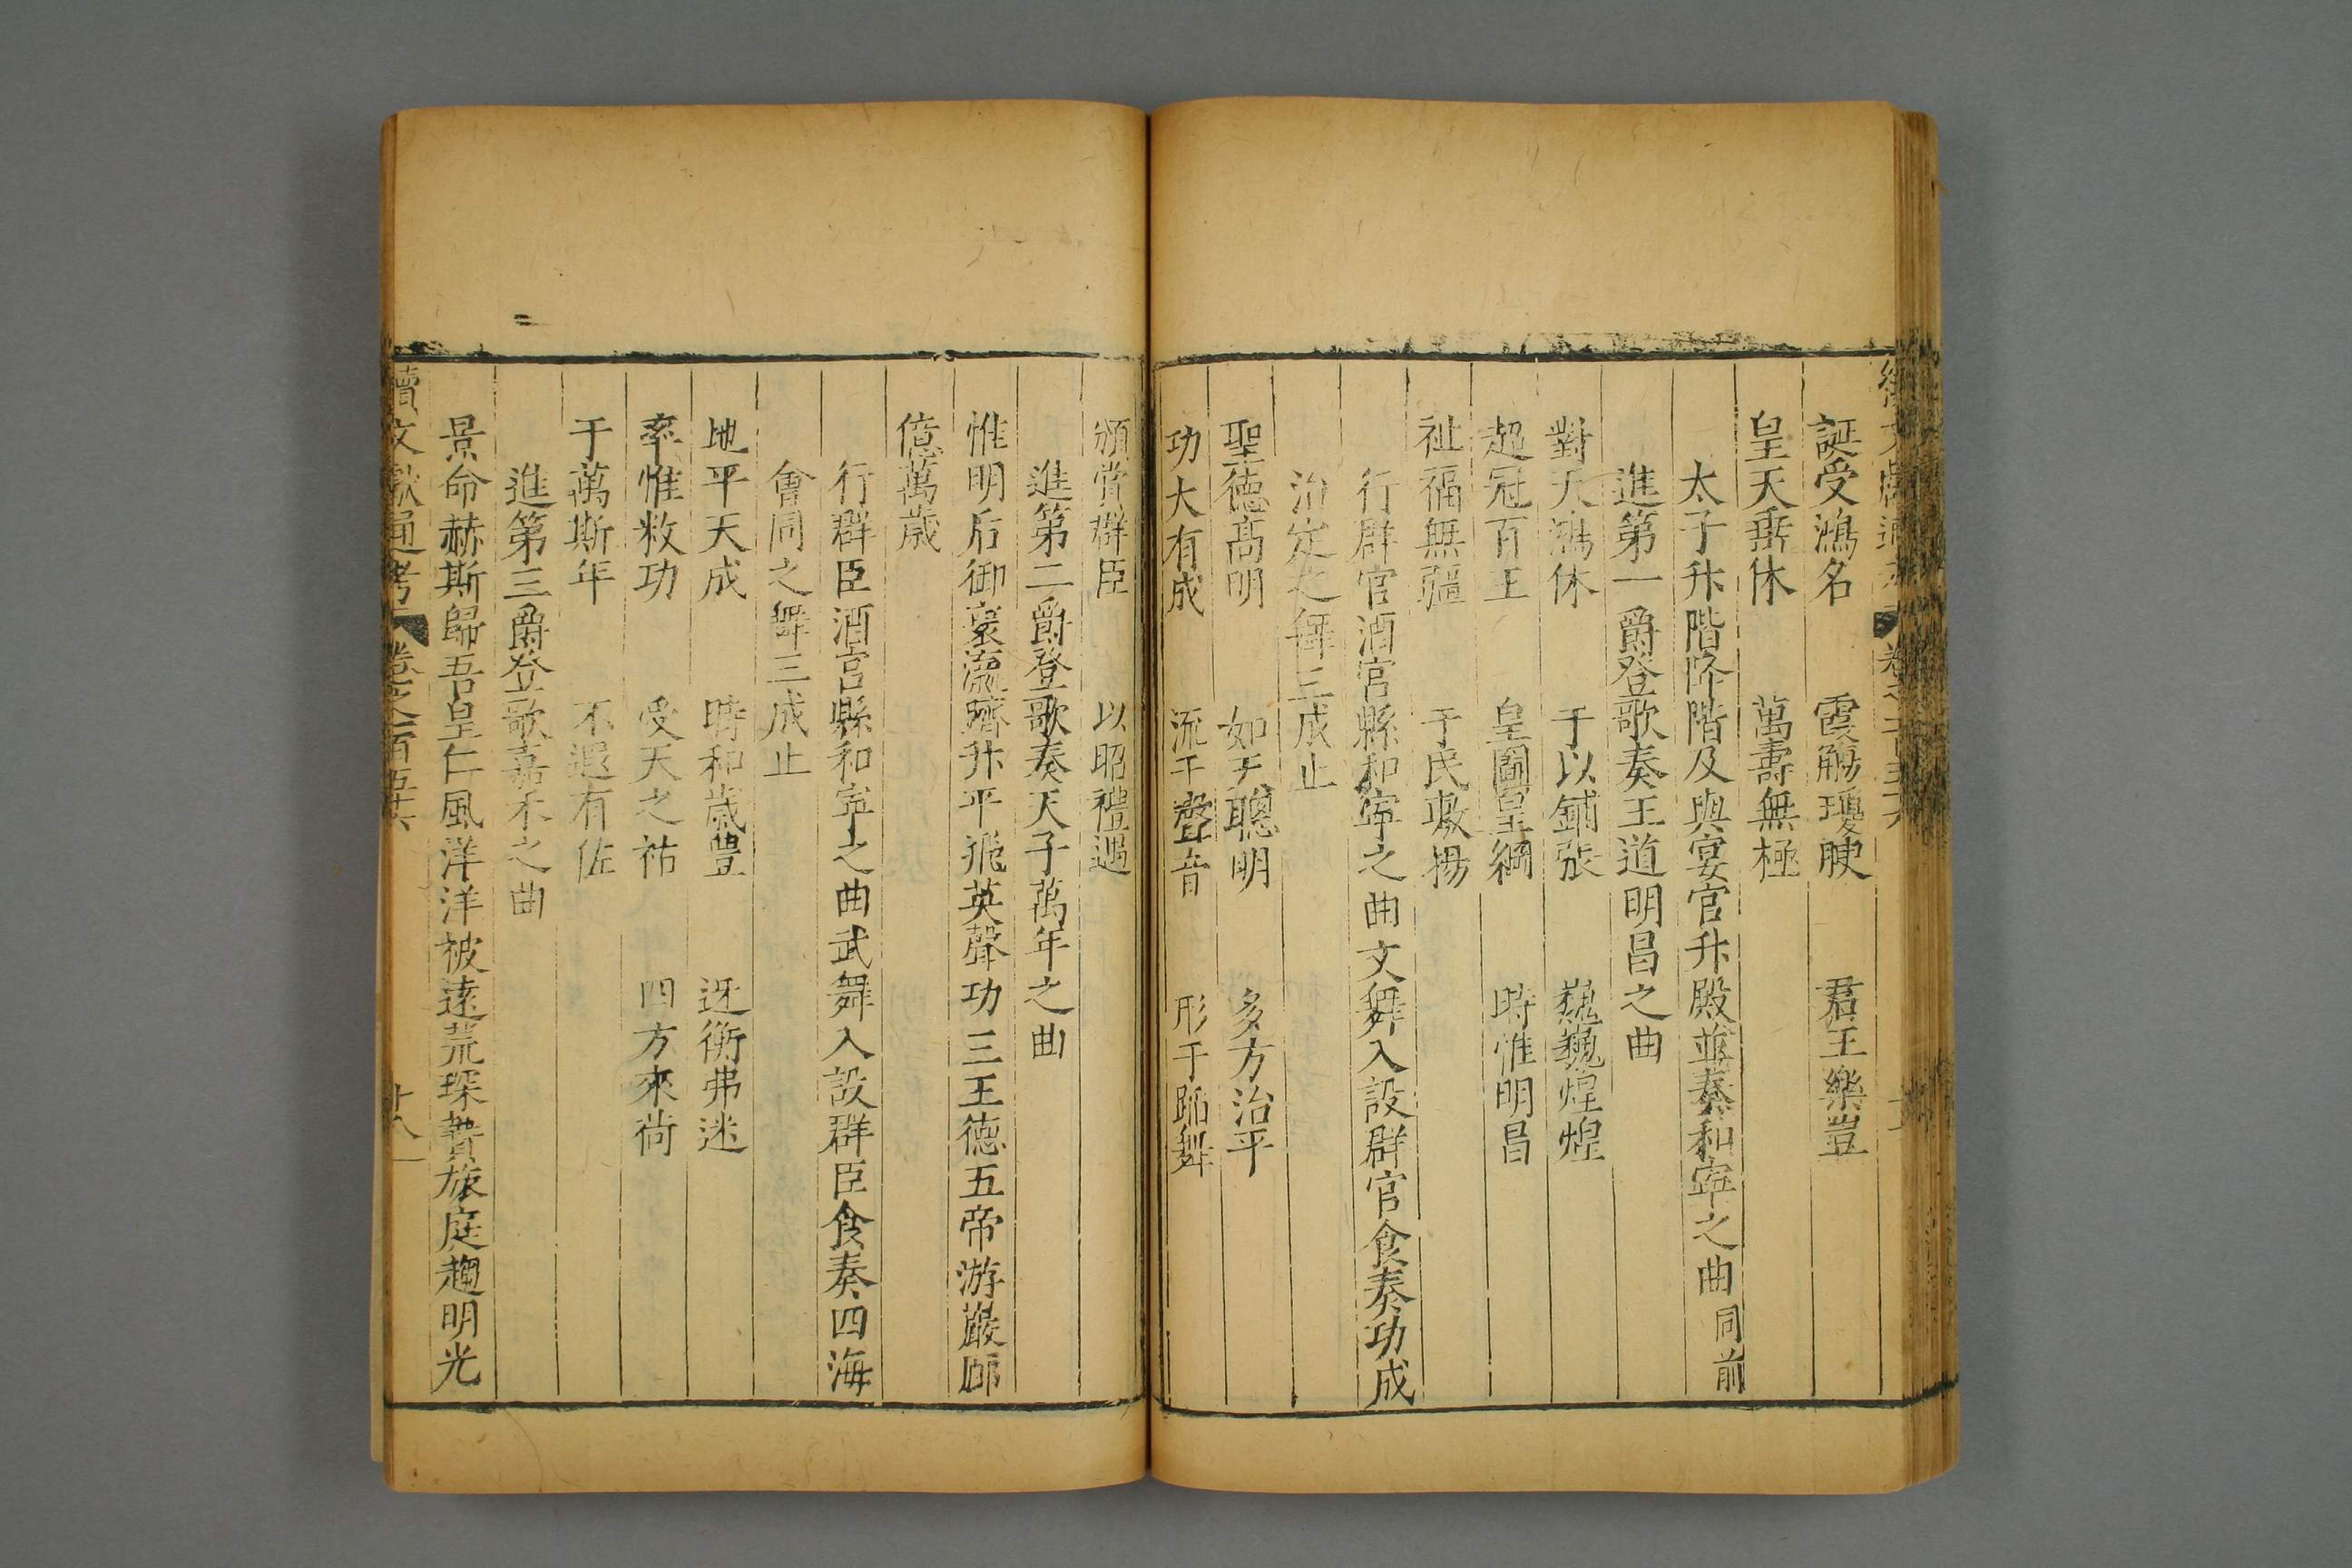 誕受鴻名 霞觴瓊腴 君王樂豈
皇天垂休 萬壽無極
太子升階降階及與宴官升殿並奏和寧之曲同前
進第一爵登歌奏王道明昌之曲
對天鴻休 于以鋪張 巍巍煌煌
超冠百王 皇圖皇綱 時惟明昌
祉福無疆 于民敷揚
行群官酒宮縣和寧之曲文舞入設群官食奏功成
治定之舞三成止
聖德高明 如天聰明 多方治平
功大有成 流于聲音 形于蹈舞
頒賞群臣 以昭禮遇
進第二爵登歌奏天子萬年之曲
惟明后御袞瀛躋升平飛英聲功三王德五帝游巖廊
億萬歲
行群臣酒宮縣和寧之曲武舞入設群臣食奏四海
會同之舞三成止
地平天成 時和歲豐 迓衡弗迷
率惟敉功 受天之祜 四方來尚
于萬斯年 不遐有佐
進第三爵登歌嘉禾之曲
景命赫斯歸吾皇仁風洋洋被遠荒琛贄旅庭趨明光
續文獻通考 卷之一百五十六 十八